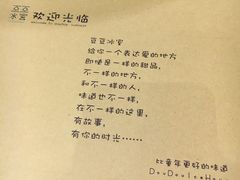 豆豆
冰室
欢迎光临
豆豆冰室
给你一个表达爱的地方
即使是一样的甜品，
不一样的地方，
和不一样的人，
味道也不一样，
在不一样的这里，
有故事，
有你的时光……
比童年更好的味道